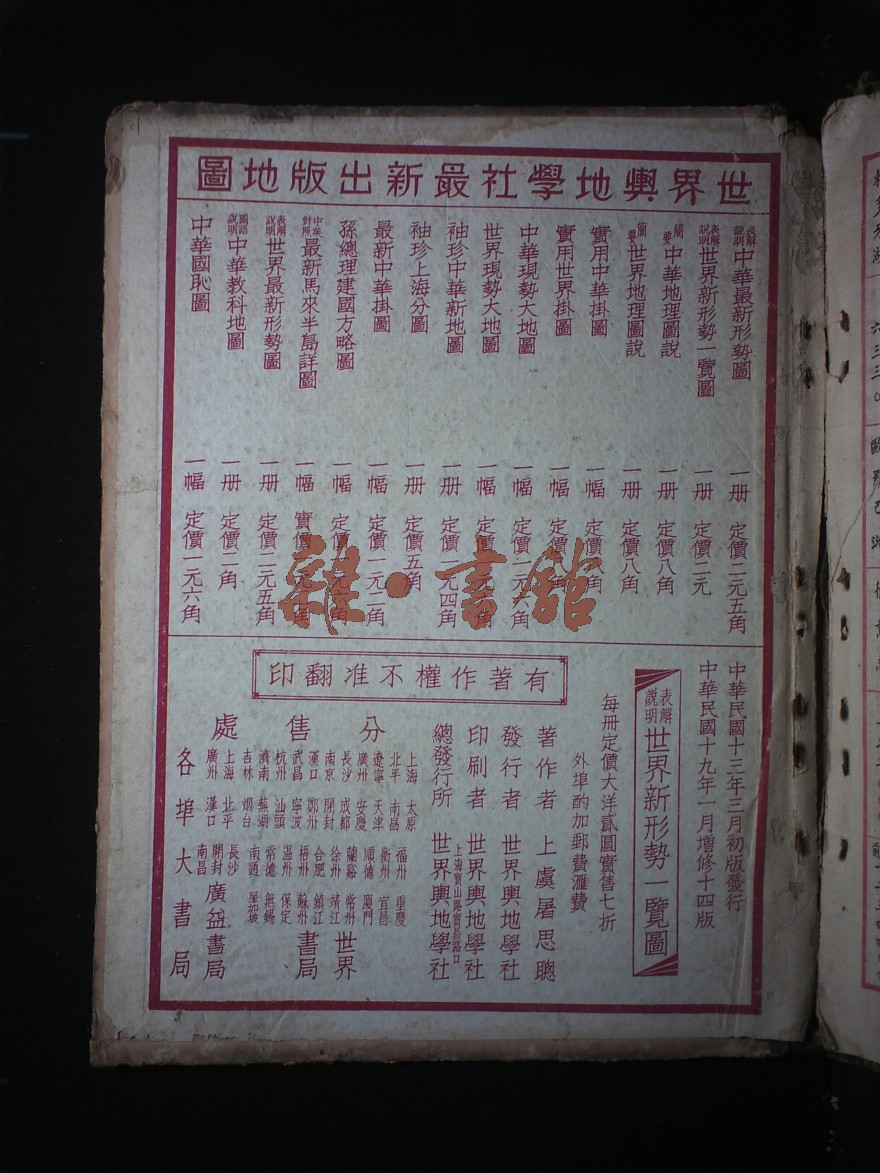 世界輿地學社最新出版地圖
表解說明中華最新形勢圖 一册 定價二元五角
表解說明世界新形勢一覽圖 一册 定價二元
簡要中華地理圖說 一册 定價八角
簡要世界地理圖說 一册 定價八角
實用中華掛圖 一幅
實用世界掛圖 一幅
中華現勢大地圖 一幅 定價一元六角
世界現勢大地圖 一幅
袖珍中華新地圖 一册
袖珍上海分圖 一册 定價五角
最新中華掛圖 一幅 定價一元二角
孫總理建國方略圖 一幅
中英對照最新馬來半島詳圖 一幅
表解說明世界最新形勢圖 一册 定價二元五角
國語說明中華教科地圖 一册 定價二角
中華國恥圖 一幅 定價一元六角
中華民國十三年三月初版發行
中華民國十九年一月增修十四版
表解說明世界新形勢一覽圖
每册定價大洋貳圓實售七折
外埠酌加郵費滙費
有著作權不准翻印
著作者 上虞屠思聰
發行者 世界輿地學社
印刷者 世界輿地學社
總發行所 世界輿地學社
上海寶山路寶昌路口
分售處
上海 太原 福州 重慶
北平 南昌 衢州 宜昌
遼寧 天津 順德 廈門
廣州 安慶 蘭谿 常州 世界
長沙 成都 徐州 靖江
南京 開封 合肥 鎮江 書局
漢口 鄭州 梧州 蘇州
武昌 寧波 温州 保定
杭州 汕頭 常德 無錫
濟南 蕪湖 南通 星加坡
吉林 烟台 長沙
上海 北平 開封 廣益書局
廣州 漢口 南昌
各埠大書局
雜·書館
六三三〇